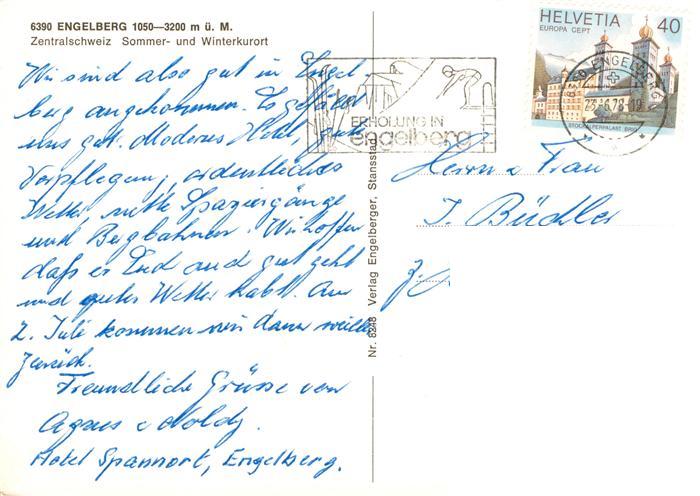 6390 ENGELBERG 1050—3200 m ü. M.
Zentralschweiz Sommer- und Winterkurort
Wir sind also gut in Engel-
berg angekommen. Es gefällt
uns gut. Modernes Hotel, gute
Verpflegung, ordentliches
Wetter, nette Spaziergänge
und Bergbahnen. Wir hoffen
daß es Euch auch gut geht
und gutes Wetter habt. Am
2. Juli kommen wir dann wieder
zurück.
Freundliche Grüsse von
Agnes & Noldy.
Hotel Spannort, Engelberg.
Nr. 8248 Verlag Engelberger, Stansstad
ERHOLUNG IN
engelberg
HELVETIA 40
EUROPA CEPT
STOCKALPERPALAST BRIG
6390 ENGELBERG
6.78-19
Herrn u Frau
J. Büchler